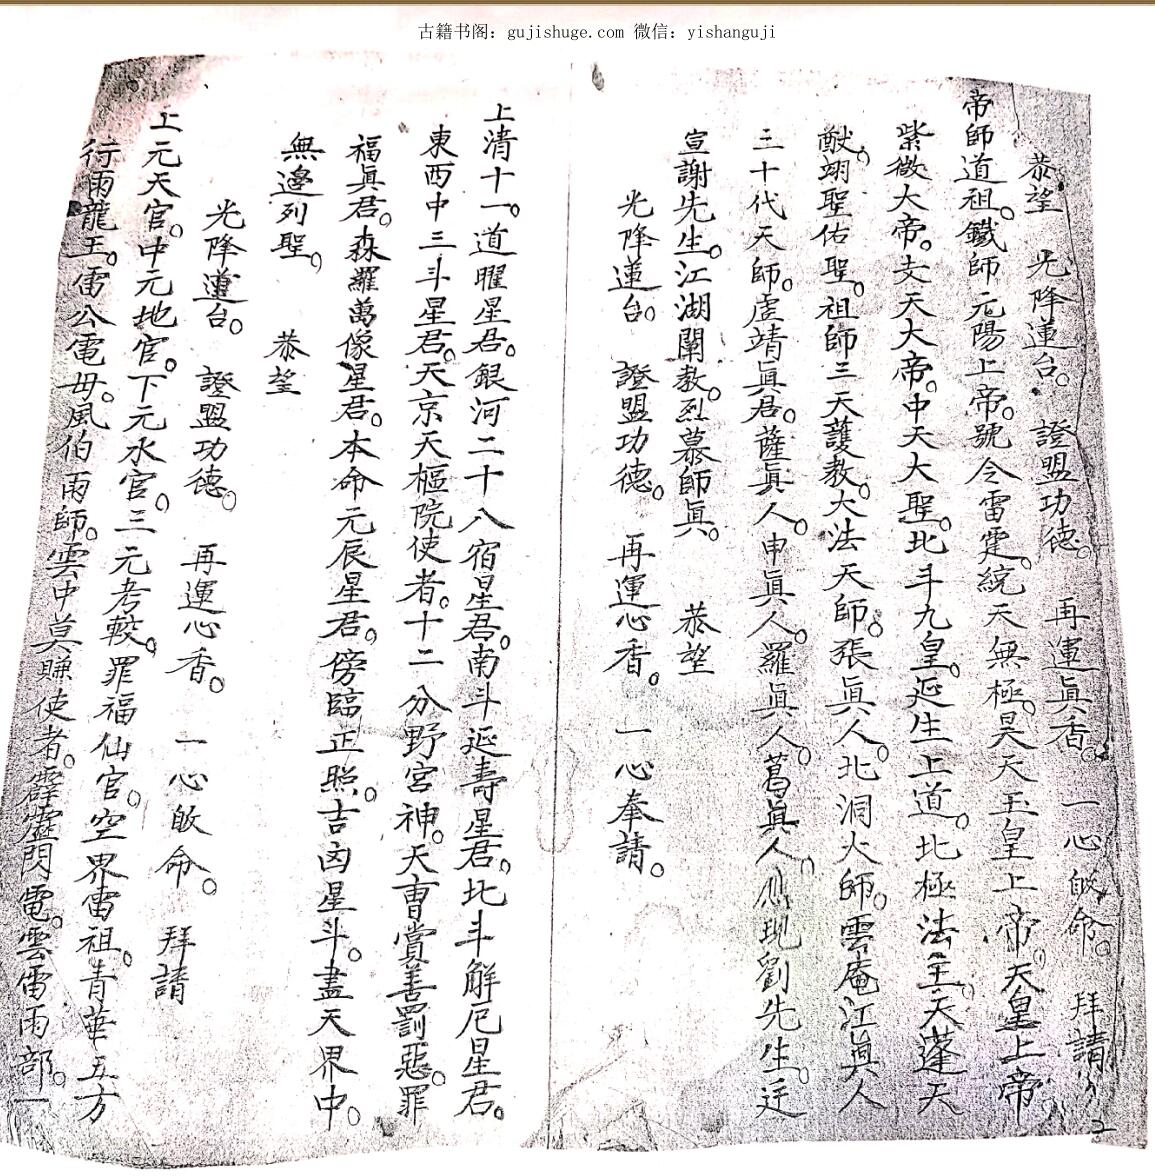 古籍书阁：gujishuge.com 微信：yishanguji
恭望　光降蓮台。證盟功德。再運眞香。一心皈命。拜請
帝師道祖。鐵師元陽上帝。號令雷霆。統天無極。昊天玉皇上帝。天皇上帝
紫微大帝。支天大帝。中天大聖。北斗九皇。延生上道。北極法主。天蓬天
猷。翊聖佑聖。祖師三天護教。大法天師。張眞人。北洞火師。雲庵江眞人
三十代天師。虛靖眞君。薩眞人。申眞人。羅眞人。葛眞人。現劉先生。廷
宣謝先生。江湖闡教。烈慕師眞。　恭望
光降蓮台。證盟功德。再運心香。一心奉請。
上清十一。道曜星君。銀河二十八宿星君。南斗延壽星君。北斗解厄星君。
東西中三斗星君。天京天樞院使者。十二分野宮神。天曹賞善罰惡。罪
福眞君。森羅萬像星君。本命元辰星君。傍臨正照。吉凶星斗。盡天界中。
無邊列聖。　恭望
光降蓮台。證盟功德。再運心香。一心皈命。拜請
上元天官。中元地官。下元水官。三元考較。罪福仙官。空界雷祖。青華五方
行雨龍王。雷公電母。風伯雨師。雲中莫賺使者。霹靂閃電。雲雷雨部。一
2